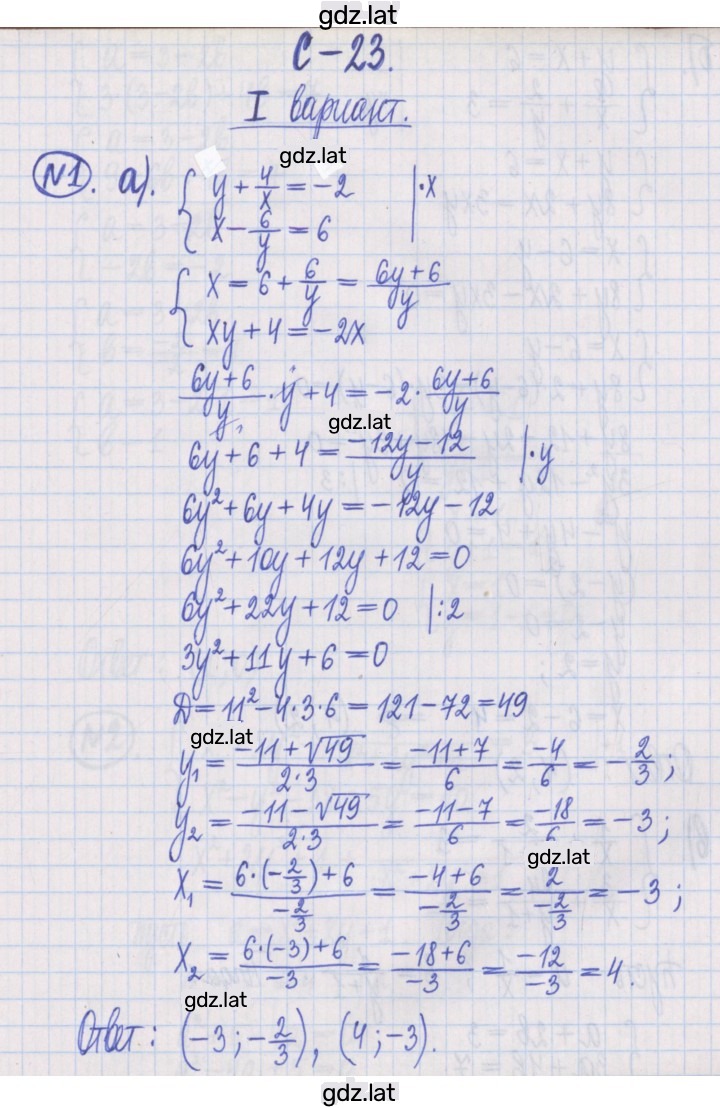 gdz.lat
С-23.
I вариант.
gdz.lat
№1. а). { y + 4/x = -2 | ·x
x - 6/y = 6
{ x = 6 + 6/y = (6y+6)/y
xy + 4 = -2x
(6y+6)/y · y + 4 = -2 · (6y+6)/y
gdz.lat
6y + 6 + 4 = (-12y-12)/y | ·y
6y² + 6y + 4y = -12y - 12
6y² + 10y + 12y + 12 = 0
6y² + 22y + 12 = 0 | :2
3y² + 11y + 6 = 0
Д = 11² - 4·3·6 = 121 - 72 = 49
gdz.lat
y₁ = (-11 + √49)/(2·3) = (-11+7)/6 = -4/6 = -2/3 ;
y₂ = (-11 - √49)/(2·3) = (-11-7)/6 = -18/6 = -3 ;
gdz.lat
x₁ = (6·(-2/3)+6)/(-2/3) = (-4+6)/(-2/3) = 2/(-2/3) = -3 ;
x₂ = (6·(-3)+6)/(-3) = (-18+6)/(-3) = (-12)/(-3) = 4.
gdz.lat
Ответ: (-3 ; -2/3), (4 ; -3).
gdz.lat